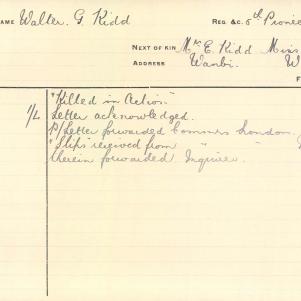 NAME Walter. G. Kidd REG. &C. 5th Pionee
NEXT OF KIN Mrs E. Kidd Miss
ADDRESS Wanbi. W
F
"Killed in Action."
1/L Letter acknowledged.
P/Letter forwarded Commrs London.
"Slips" received from " "
therein forwarded Inquirer.